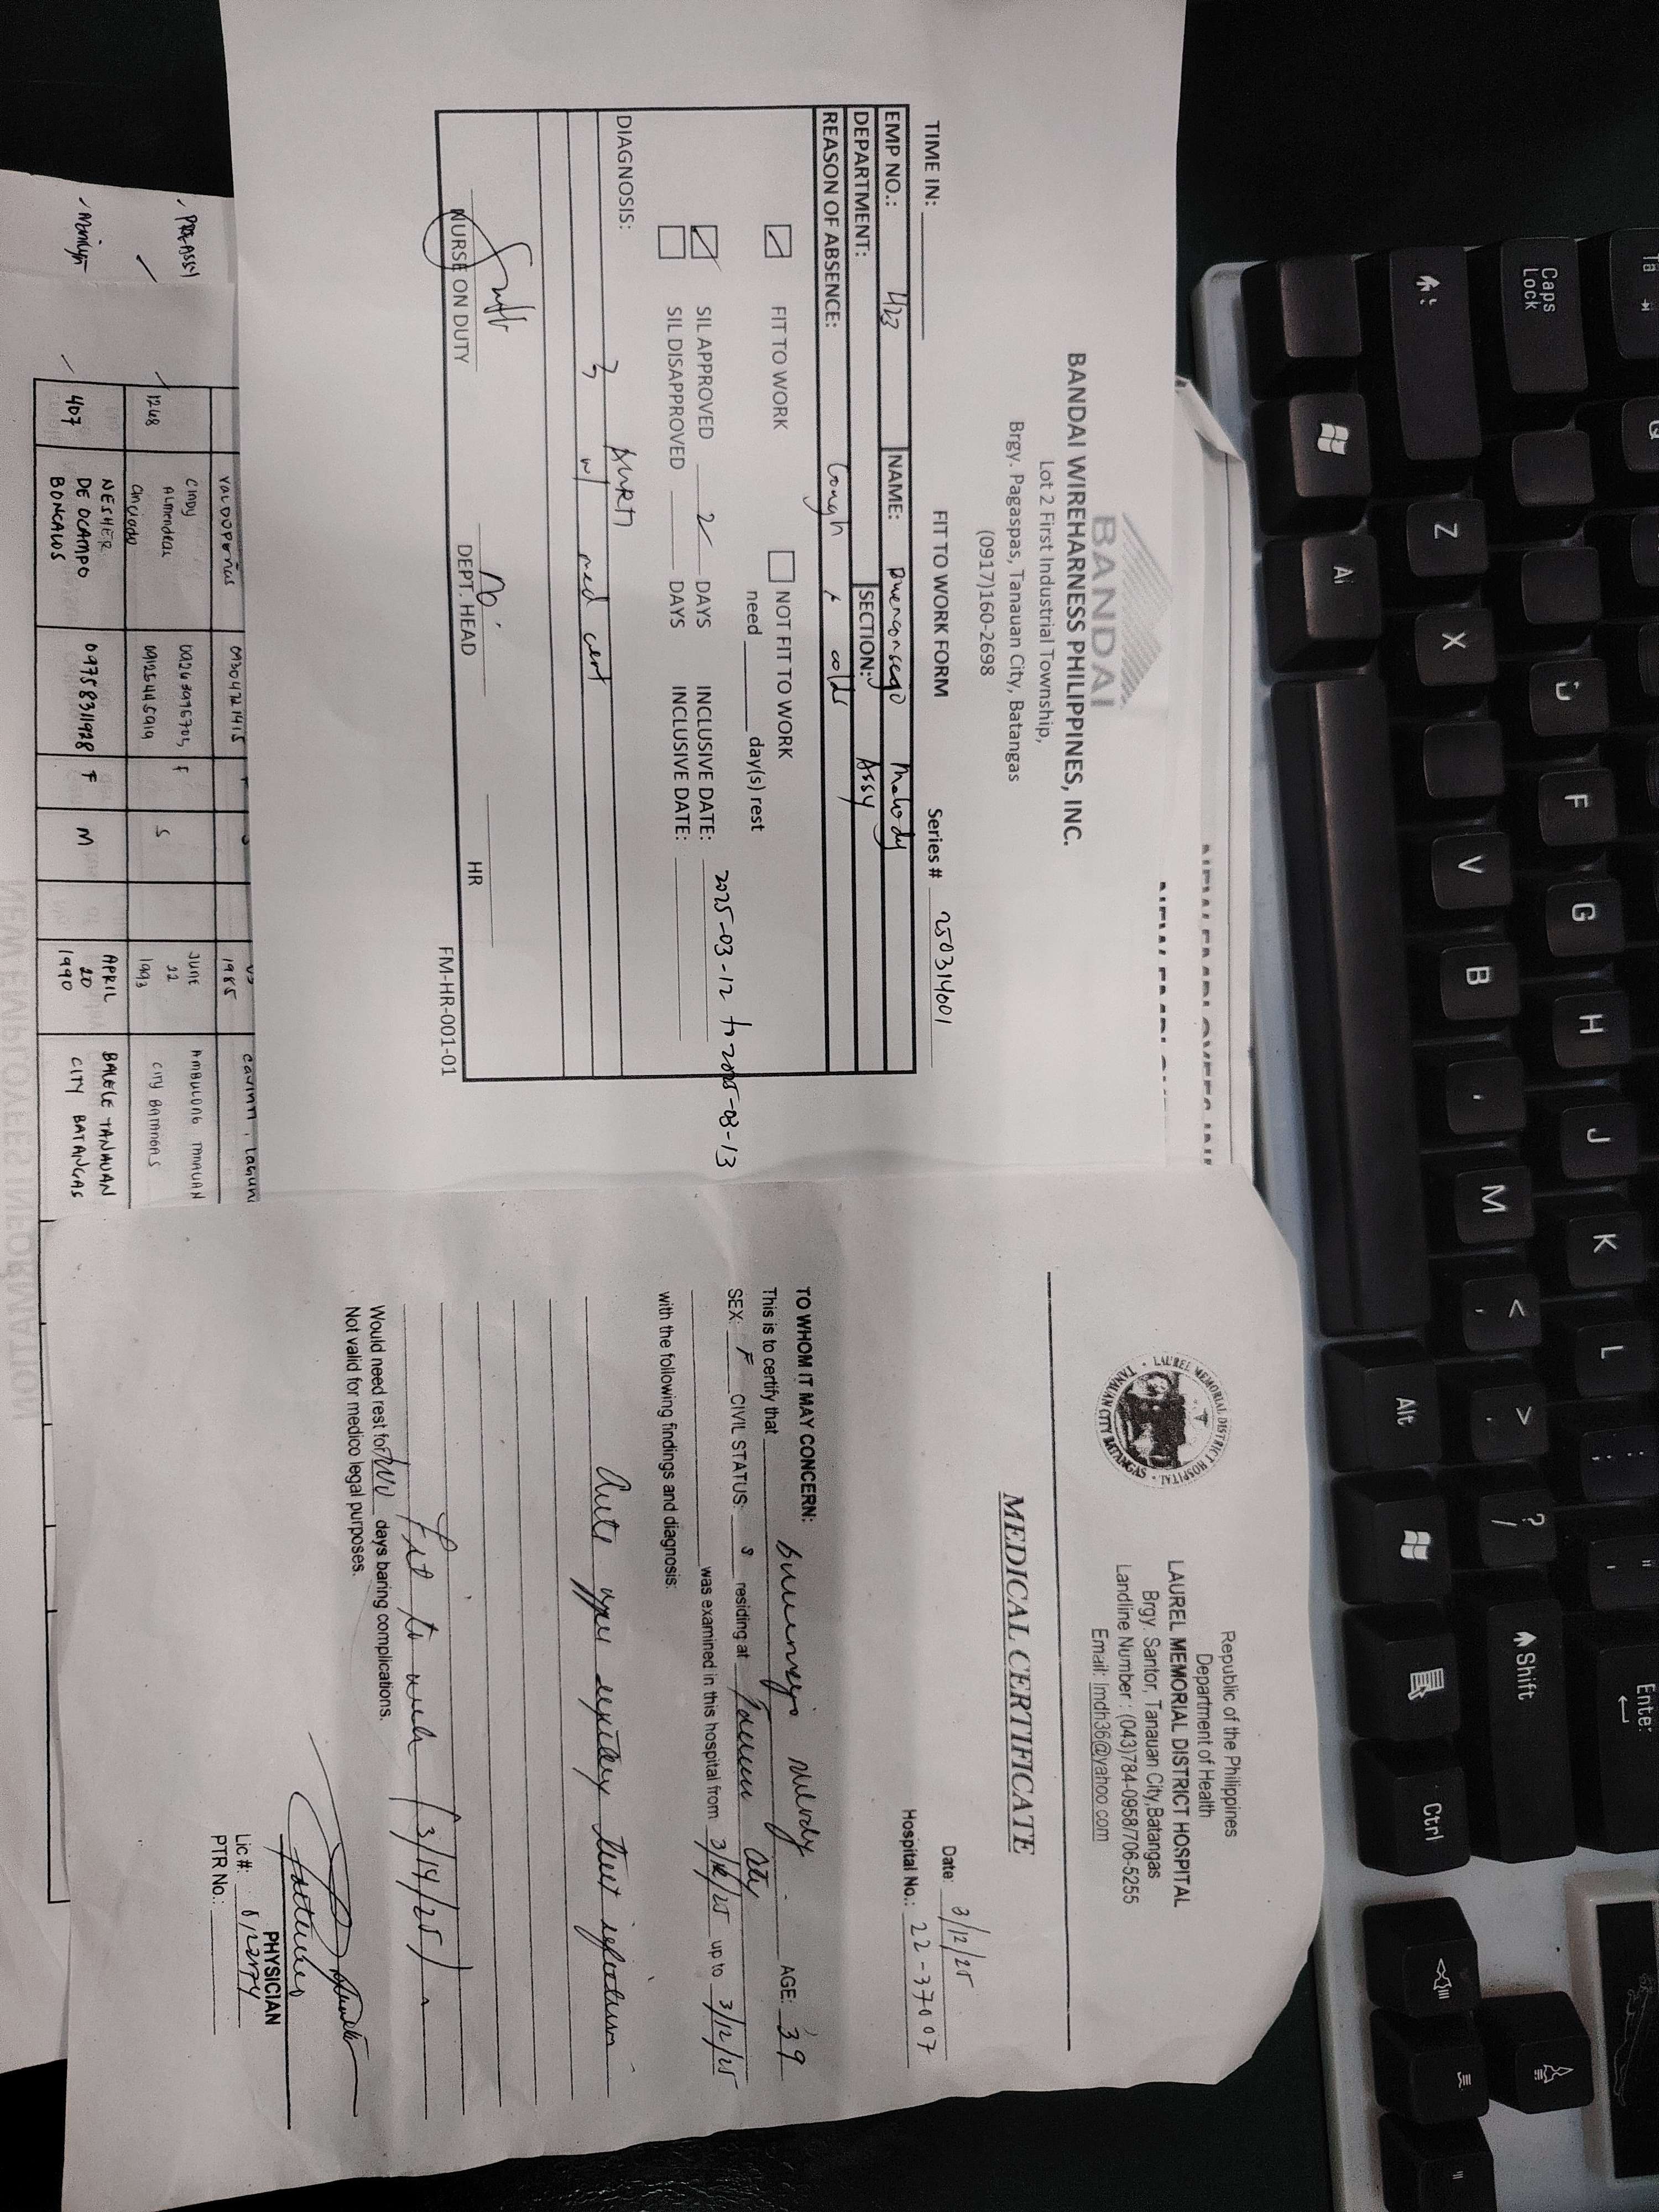 BANDAI
BANDAI WIREHARNESS PHILIPPINES, INC.
Lot 2 First Industrial Township,
Brgy. Pagaspas, Tanauan City, Batangas
(0917)160-2698
FIT TO WORK FORM Series # 250314001
TIME IN:
EMP NO.: 423 NAME: Buenconsejo Melody
DEPARTMENT: SECTION: Assy
REASON OF ABSENCE: Cough & colds
FIT TO WORK NOT FIT TO WORK
need day(s) rest
SIL APPROVED 2 DAYS INCLUSIVE DATE: 2025-03-12 to 2025-03-13
SIL DISAPPROVED DAYS INCLUSIVE DATE:
DIAGNOSIS: AURTI
w/ med cert
NURSE ON DUTY DEPT. HEAD HR
FM-HR-001-01
Republic of the Philippines
Department of Health
LAUREL MEMORIAL DISTRICT HOSPITAL
Brgy. Santor, Tanauan City, Batangas
Landline Number : (043)784-0958/706-5255
Email: lmdh36@yahoo.com
LAUREL MEMORIAL DISTRICT HOSPITAL
TANAUAN CITY BATANGAS
MEDICAL CERTIFICATE
Date: 3/12/25
Hospital No.: 22-37007
TO WHOM IT MAY CONCERN:
This is to certify that Buenconsejo Melody AGE: 39
SEX: F CIVIL STATUS: S residing at Tanauan City
was examined in this hospital from 3/12/25 up to 3/12/25
with the following findings and diagnosis:
Acute upper respiratory tract infection
Fit to work (3/14/25)
Would need rest for two days baring complications.
Not valid for medico legal purposes.
PHYSICIAN
Lic #:
PTR No.:
PRE-ASSY
Marilyn
VALDOPEÑAS 09304721415 1985 CAVINTI, LAGUNA
1268 CINDY ALMENDRAL ANCIADO 09263976703, 09125445919 F S JUNE 22 1993 AMBULONG TANAUAN CITY BATANGAS
407 NESHER DE OCAMPO BONCALOS 09758311928 F M APRIL 20 1990 BALELE TANAUAN CITY BATANGAS
NEW EMPLOYEES INFORMATION
Caps Lock
Z X V B M
F G H J K L
Alt
Shift
Enter
Ctrl